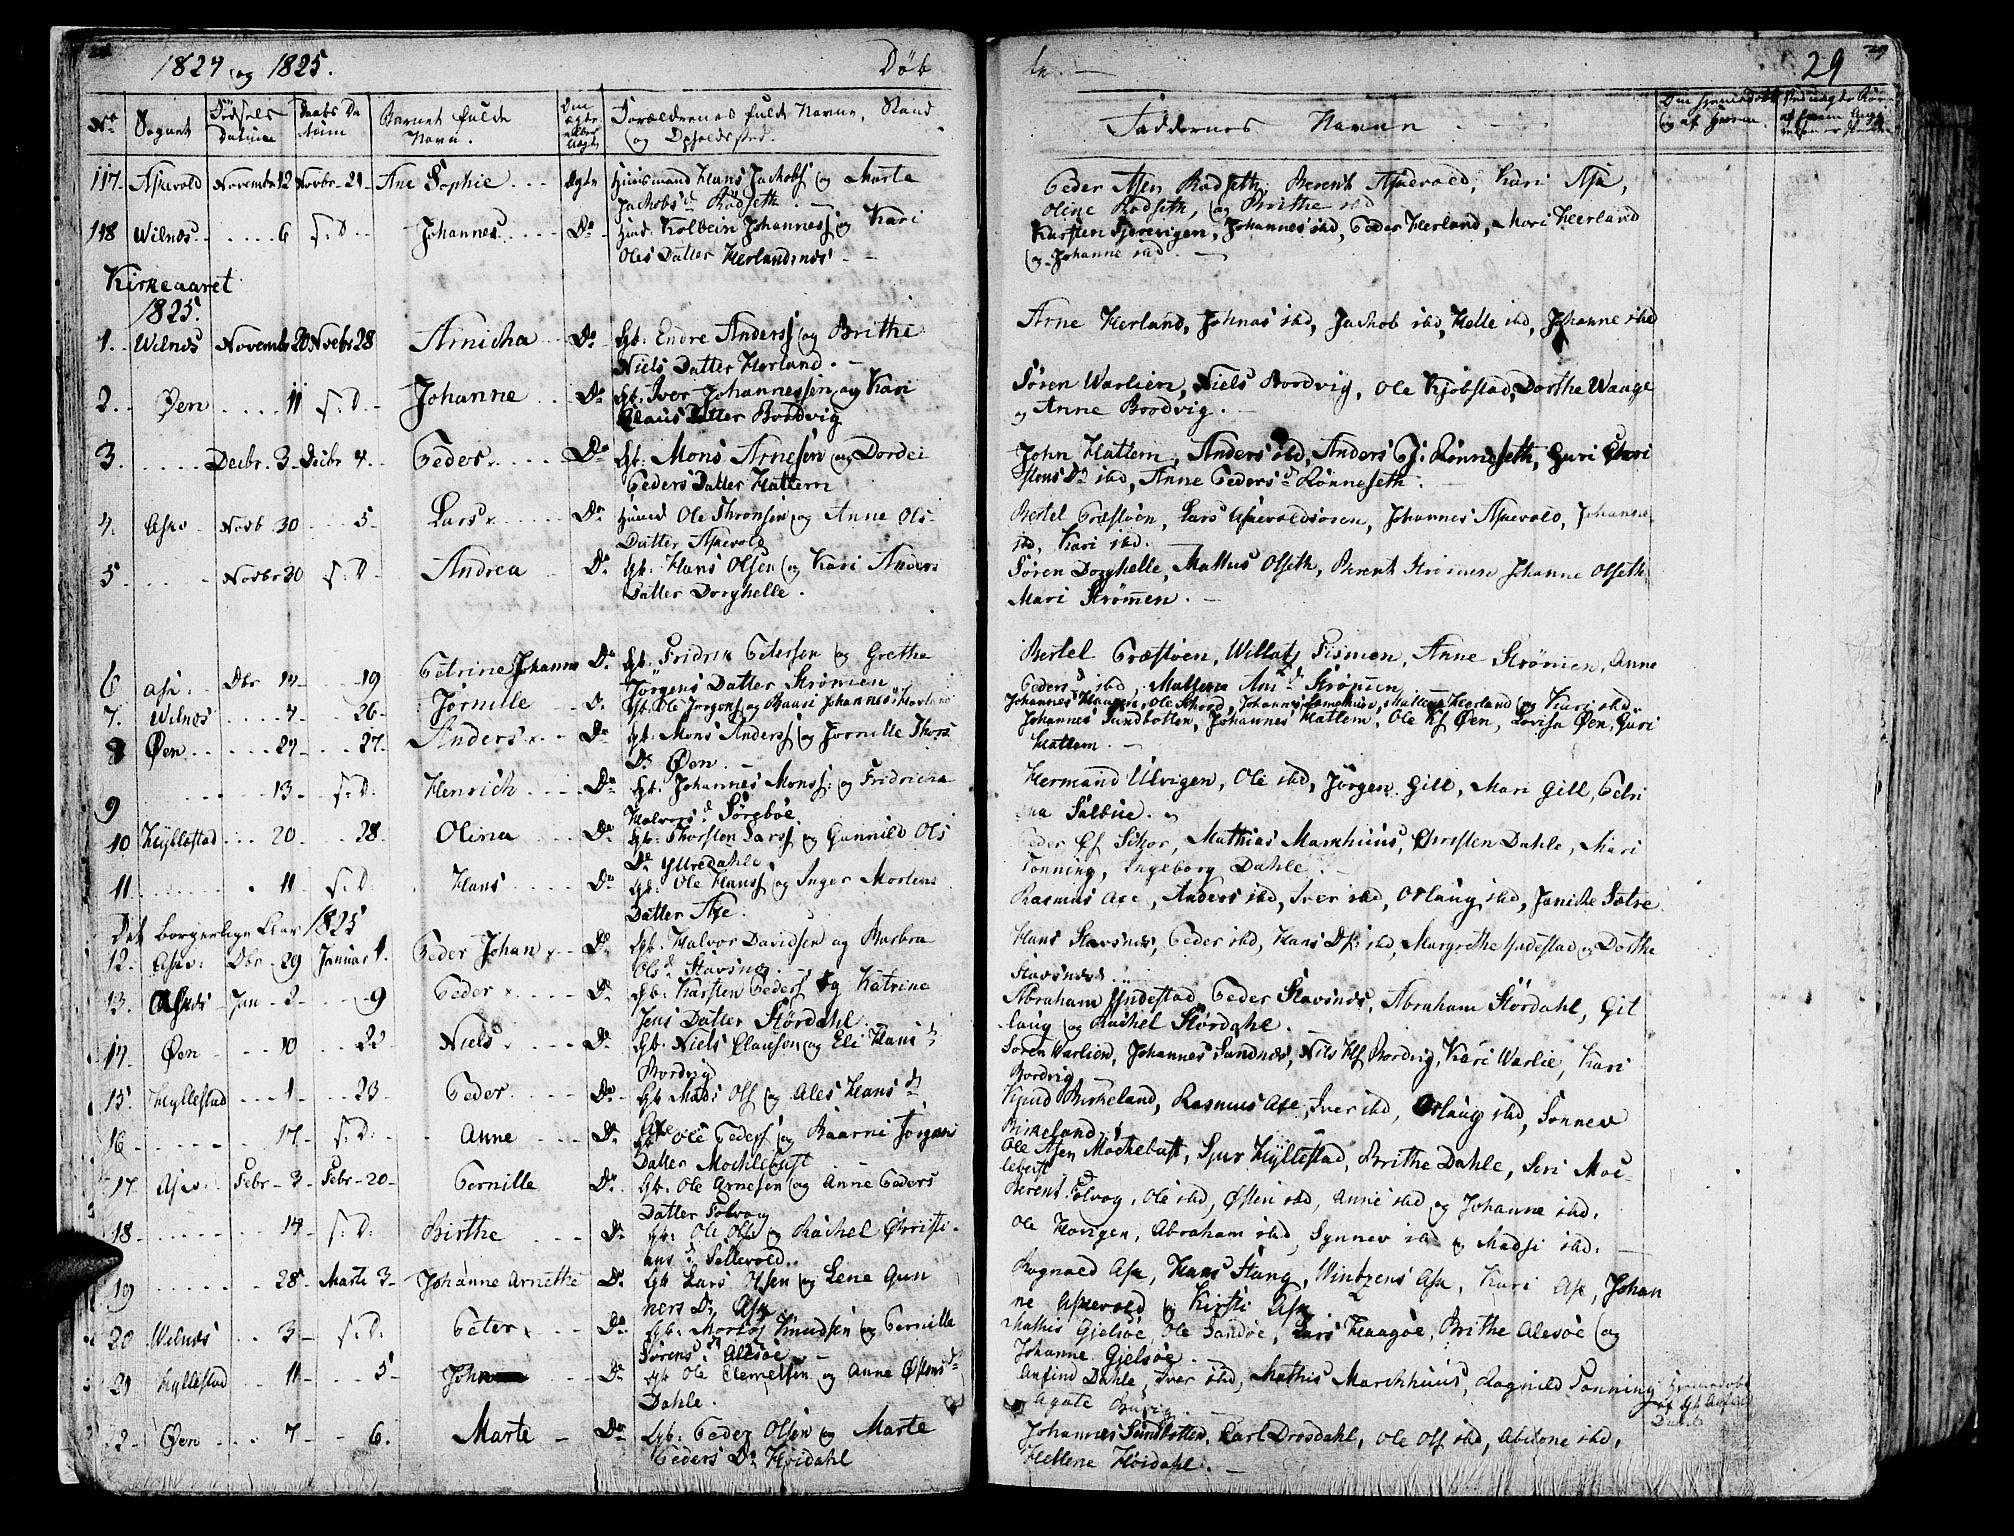 1824 og 1825. Døb
No Sognet Fødsels Datum Daabs Datum Barnets fulde Navn. Om ægte eller uægte Forældrenes fulde Navne, Stand og Opholdssted.
117. Askevold Novembr 12 Novbr. 21 Ane Sophie ægte Huusmand Hans Jachobs og Marte
Jachobs D. Rødseth
118 Wilnes 6 s. D. Johannes Do Huusd. Kolbein Johanness og Kari
Oles Datter Herlandsnes
Kirkeaaret
1825.
1. Wilnes Novembr 20 Novbr 28 Arnicha Do Gb. Endre Anderss og Brithe
Niels Datter Herland.
2. Øen 11 s. D. Johanne Do Gb. Iver Johannessen og Kari
Claus Datter Bordvig
3. Decbr. 3 Decbr 4. Peder Do Gb. Mons Arnesen og Dordei
Peders Datter Hattem
4. Askv. Novb 30 5 Lars Do Huusd Ole Thronsen og Anne Ols
Datter Askevold
5 Novbr 30 s. D. Andrea Do Gb. Hans Olsen og Kari Anders
Datter Dorghelle.
6 Ask. Dbr 14 19 Petrine Johanne Do Gb. Fridrik Petersen og Grethe
Jørgens Datter Strømen
7. Wilnes 4 26 Jørnille D. Gb. Ole Jørgens og Baari Johannes D Herland
8 Øen 24 27 Anders Do Gb. Mons Anderss og Jørnille Thors
D. Øen.
9 13 s. D. Henrich Do Gb. Johannes Monss: og Fridricha
Halvors D. Sørebøe.
10 Hyllestad 20 28 Olina Do Gb. Thorsten Larss og Gunnild Ols
D. Yttredahle
11. 11 s. D. Hans Do Gb. Ole Hanss og Inger Mortens
Datter Axe.
Det borgerlige Aar 1825
12. Askv: Dbr 29 Januar 1. Peder Johan Do Gb. Halvor Davidsen og Barbra
Ols D. Stavsnes.
13. Jan 2 9 Peder D. Gb. Karsten Peders og Katrine
Jens Datter Stördahl.
14 Øen 10 Niels D. Gb. Niels Clausen og Eli Hans D
Bordvig
15. Hyllestad 1 23 Peder Do Gb Mads Ols og Ales Hans D
Axe
16 17 s. D. Anne Do Gb Ole Peders og Baarni Jørgens
Datter Mochlebust
17. Askv. Febr 3 Febr 20 Pernille Do Gb. Ole Arnesen og Anne Peders
Datter Folvog
18 14 s. D. Birthe Do Gb. Ole Ols og Rachel Christi-
ans D. Sellevold.
19 28 Marti 3 Johanne Arnethe D. Gb Lars Olsen og Lene Gun
ners D. Ask
20 Wilnes 3 s. D. Peter Do Gb. Mortes Knudsen og Pernille
Sørens D Alesøe.
21 Hyllestad 11 5 John Do Gb Ole Clemetsen og Anne Østens D
Dahle.
22 Øen 7 6. Marte Do Gb. Peder Olsen og Marte
Peders D. Høidahl
te. 29
Faddernes Navne
Peder Asen Rødseth, Berent Askevold, Kari Ask,
Oline Rødseth, og Brithe ibd
Karsten Tjerevigen, Johannes ibd, Peder Herland, Mari Herland
og Johanne ibd.
Arne Herland, Johnas ibd, Jachob ibd, Helle ibd, Johanne ibd
Søren Warlien, Niels Bordvig, Ole Kjøbstad, Dorthe Waage
og Anne Bordvig.
John Hattem, Anders ibd, Anders P: Rønneseth, Guri Chri
stens D. ibd, Anne Peders D. Rønneseth.
Bertel Præstøen, Lars Askevoldsøren, Johannes Askevold, Johanne
ibd, Kari ibd.
Søren Dorghelle, Mattus Olseth, Berent Strømen Johanne Olseth
Mari Strømen.
Bertel Præstøen, Willats Fismen, Anne Strømen, Anne
Peders D ibd, Mattea Ans D. Strømen
Johannes Haugen, Ole Schord, Johannes, Herland og Kari ibd.
Johannes Sundbotten, Johannes Hattem, Ole Øen, Lovisa Øen, Guri
Hattem.
Hermand Ulvigen, Ole ibd, Jørgen Gill, Mari Gill, Petri
na Salbue.
Peder Sskor, Mathias Marchuus, Christen Dahle, Mari
Tonning, Ingeborg Dahle.
Rasmus Axe, Anders ibd, Iver ibd, Oslaug ibd, Janiche Sætre
Hans Stavsnes, Peder ibd, Hans ibd, Margrethe Yndestad og Dorthe
Stavsnes.
Abraham Yndestad, Peder Stavsnes, Abraham Stördahl, Git
laug og Rachel Stördahl.
Søren Warlien, Johannes Sandnes, Nils Bordvig, Kari Warlie, Kari
Bordvig
Knud Birkeland, Rasmus Axe, Iver ibd, Oslaug ibd, Sønnev
Birkeland.
Ole Asen Mochebust, Hyllestad, Brithe Dahle, Seri Moc-
lebust
Berent Folvog, Ole ibd, Østen ibd, Anne ibd og Johanne ibd.
Ole Horigen, Abraham ibd, Synnev ibd og Madsi ibd.
Rognald Ask, Hans Stang, Wintzens Ask, Kari Ask, Johan
ne Askevold og Kirsti Ask.
Mathis Gjelsøe, Ole Sandøe, Lars Haagøe, Brithe Alesøe og
Johanne Gjelsøe.
Anfind Dahle, Iver ibd, Mathis Marchhuus, Rognild Tonning
Agate
Johannes Sundbotten, Carl Drosdahl, Ole Ols ibd, Abelone ibd,
Hellene Høidahl.